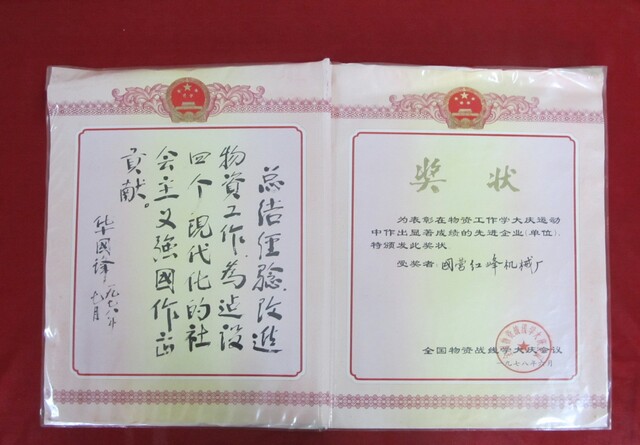 总结经验改进
物资工作为建设
四个现代化的社
会主义强国作出
贡献。
华国锋 一九七八年
月
奖状
为表彰在物资工作学大庆运动
中作出显著成绩的先进企业(单位),
特颁发此奖状
受奖者:國营红峰机械厂
全国物资战线学大庆会议
一九七八年 月